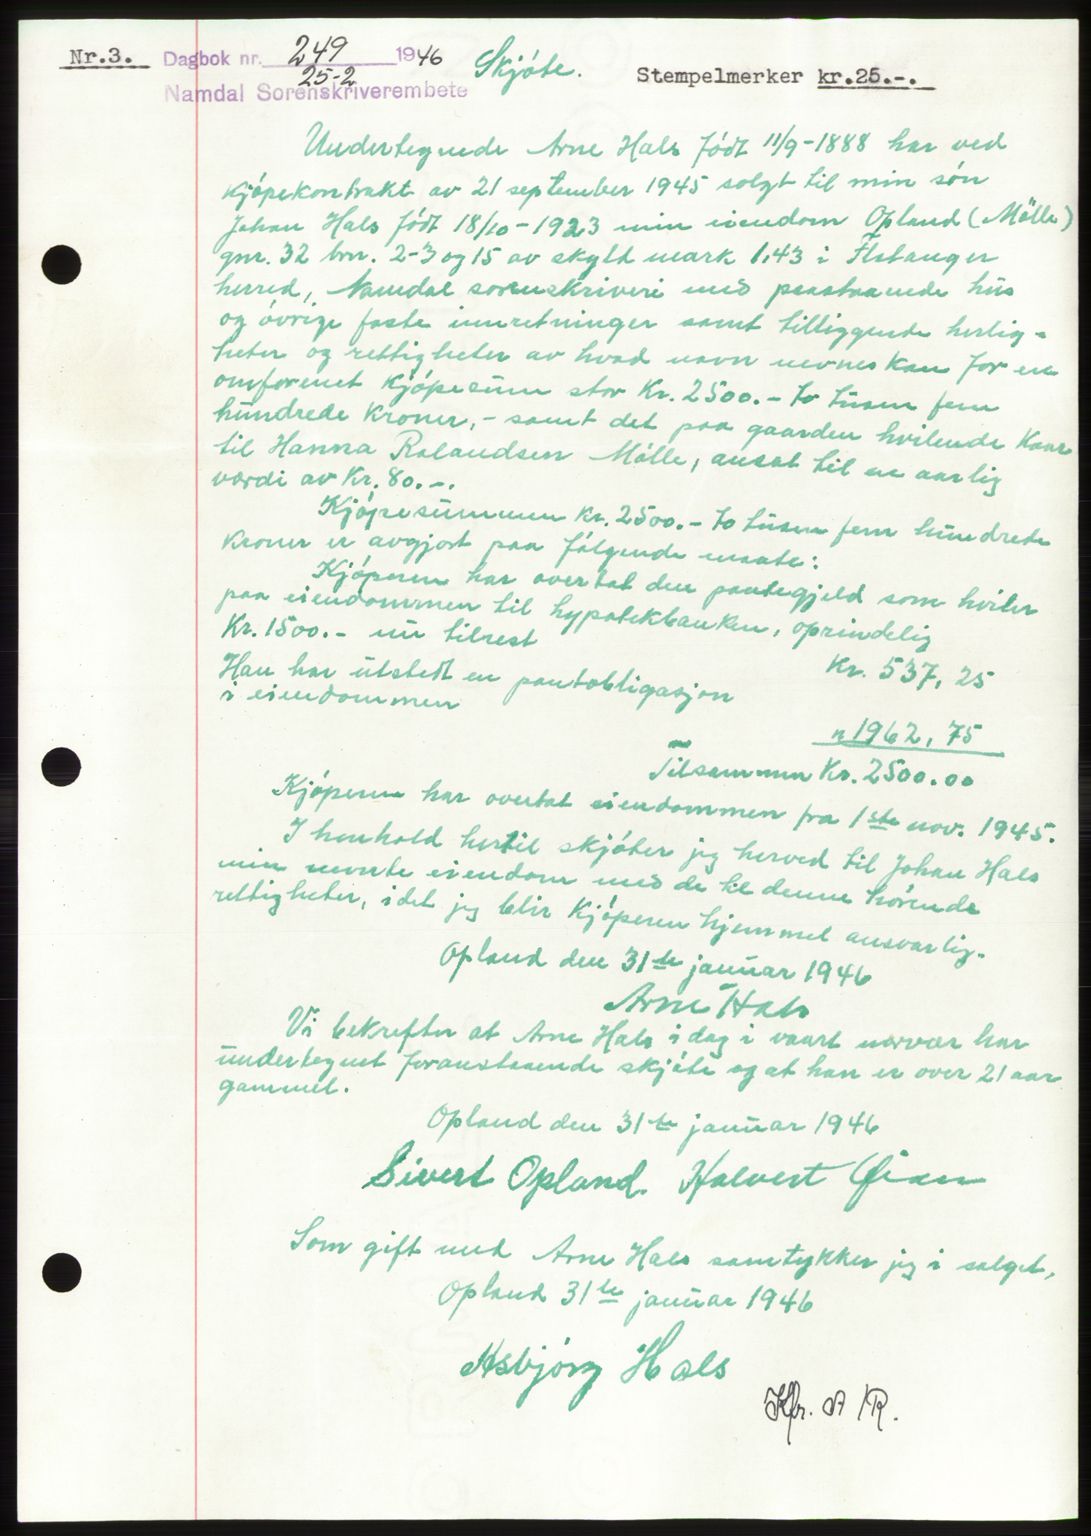 Nr.3. Dagbok nr. 249 1946 Skjóte. Stempelmerker kr.25.-.
25-2
Namdal Sorenskriverembete
Undertegnede Arne Hals født 11/9-1888 har ved
Kjøpekontrakt av 21 september 1945 solgt til min søn
Johan Hals født 18/10-1923 min eiendom Opland (Mölle)
gnr. 32 brn. 2-3 og 15 av skyld mark 1,43 i Flatanger
herred, Namdal sorenskriveri med paastaaende hus
og øvrige faste innretninger samt tilliggende herlig-
heter og rettigheter av hvad navn nevnes kan for en
omforenet Kjøpesum stor Kr. 2500.- to tusen fem
hundrede Kroner,- samt det paa gaarden hvilende Kaar
til Hanna Rolandsen Mölle, ansat til en aarlig
værdi av Kr. 80.-.
Kjøpesummen Kr. 2500.- to tusen fem hundrede
Kroner er avgjort paa følgende maate:
Kjøperen har overtat den pantegjeld som hviler
paa eiendommen til hypotekbanken, oprindelig
Kr. 1500.- nu tilrest Kr. 537,25
Han har utstedt en pantobligasjon
i eiendommen " 1962,75
Tilsammen Kr. 2500.00
Kjøperen har overtat eiendommen fra 1ste nov. 1945.
I henhold hertil skjøter jeg herved til Johan Hals
min nevnte eiendom med de til denne hørende
rettigheter, idet jeg blir Kjøperen hjemmel ansvarlig.
Opland den 31te januar 1946
Arne Hals
Vi bekrefter at Arne Hals i dag i vaart nærvær har
undertegnet foranstaaende skjøte og at han er over 21 aar
gammel.
Opland den 31te januar 1946
Sivert Opland. Halvert Øian
Som gift med Arne Hals samtykker jeg i salget,
Opland 31te januar 1946
Asbjørg Hals
Kfr. A/R.